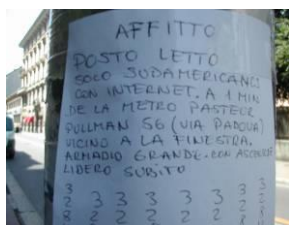 AFFITTO
POSTO LETTO
SOLO SUDAMERICANI
CON INTERNET. A 1 MIN
DE LA METRO PASTEUR
PULLMAN 56 (VIA PADOVA)
VICINO A LA FINESTRA.
ARMADIO GRANDE. CON
LIBERO SUBITO
3 3 3 3 3 3 3 3
2 2 2 2 2 2 2 2